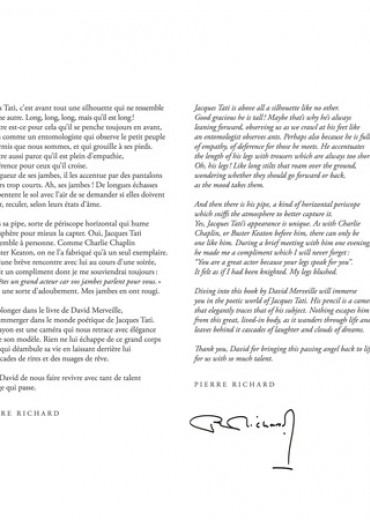 Tati, c'est avant tout une silhouette qui ne ressemble
ne autre. Long, long, long, mais qu'il est long!
tre est-ce pour cela qu'il se penche toujours en avant,
comme un entomologiste qui observe le petit peuple
rmis que nous sommes, et qui grouille à ses pieds.
tre aussi parce qu'il est plein d'empathie,
érence pour ceux qu'il croise.
gueur de ses jambes, il les accentue par des pantalons
rs trop courts. Ah, ses jambes ! De longues échasses
pentent le sol avec l'air de se demander si elles doivent
r, reculer, selon leurs états d'âme.
s sa pipe, sorte de périscope horizontal qui hume
sphère pour mieux la capter. Oui, Jacques Tati
emble à personne. Comme Charlie Chaplin
ster Keaton, on ne l'a fabriqué qu'à un seul exemplaire.
une brève rencontre avec lui au cours d'une soirée,
it un compliment dont je me souviendrai toujours :
êtes un grand acteur car vos jambes parlent pour vous. »
une sorte d'adoubement. Mes jambes en ont rougi.
longer dans le livre de David Merveille,
mmerger dans le monde poétique de Jacques Tati.
ayon est une caméra qui nous retrace avec élégance
e son modèle. Rien ne lui échappe de ce grand corps
qui déambule sa vie en laissant derrière lui
cades de rires et des nuages de rêve.
David de nous faire revivre avec tant de talent
ge qui passe.
RE RICHARD
Jacques Tati is above all a silhouette like no other.
Good gracious he is tall! Maybe that's why he's always
leaning forward, observing us as we crawl at his feet like
an entomologist observes ants. Perhaps also because he is full
of empathy, of deference for those he meets. He accentuates
the length of his legs with trousers which are always too short.
Oh, his legs! Like long stilts that roam over the ground,
wondering whether they should go forward or back,
as the mood takes them.
And then there is his pipe, a kind of horizontal periscope
which sniffs the atmosphere to better capture it.
Yes, Jacques Tati's appearance is unique. As with Charlie
Chaplin, or Buster Keaton before him, there can only be
one like him. During a brief meeting with him one evening,
he made me a compliment which I will never forget:
"You are a great actor because your legs speak for you".
It felt as if I had been knighted. My legs blushed.
Diving into this book by David Merveille will immerse
you in the poetic world of Jacques Tati. His pencil is a camera
that elegantly traces that of his subject. Nothing escapes him
from this great, loud-in body, as it wanders through life and
leaves behind it cascades of laughter and clouds of dreams.
Thank you, David for bringing this passing angel back to life
for us with so much talent.
PIERRE RICHARD
P. Richard